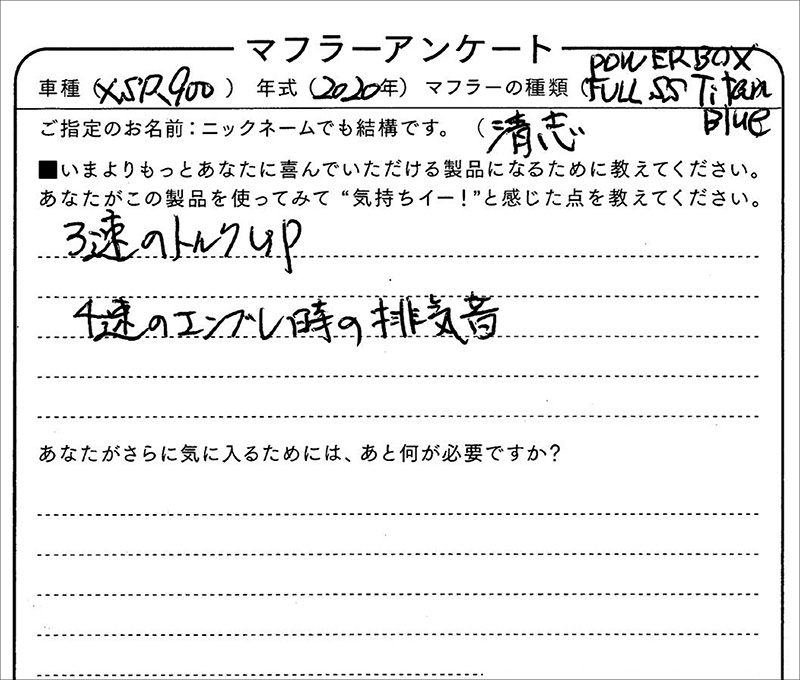 マフラーアンケート
車種（XSR900）　年式（2020年）　マフラーの種類（POWERBOX
FULL SS Titan
Blue
ご指定のお名前：ニックネームでも結構です。（清志
■いまよりもっとあなたに喜んでいただける製品になるために教えてください。
あなたがこの製品を使ってみて“気持ちイー！”と感じた点を教えてください。
3速のトルクup
4速のエンブレ時の排気音
あなたがさらに気に入るためには、あと何が必要ですか？